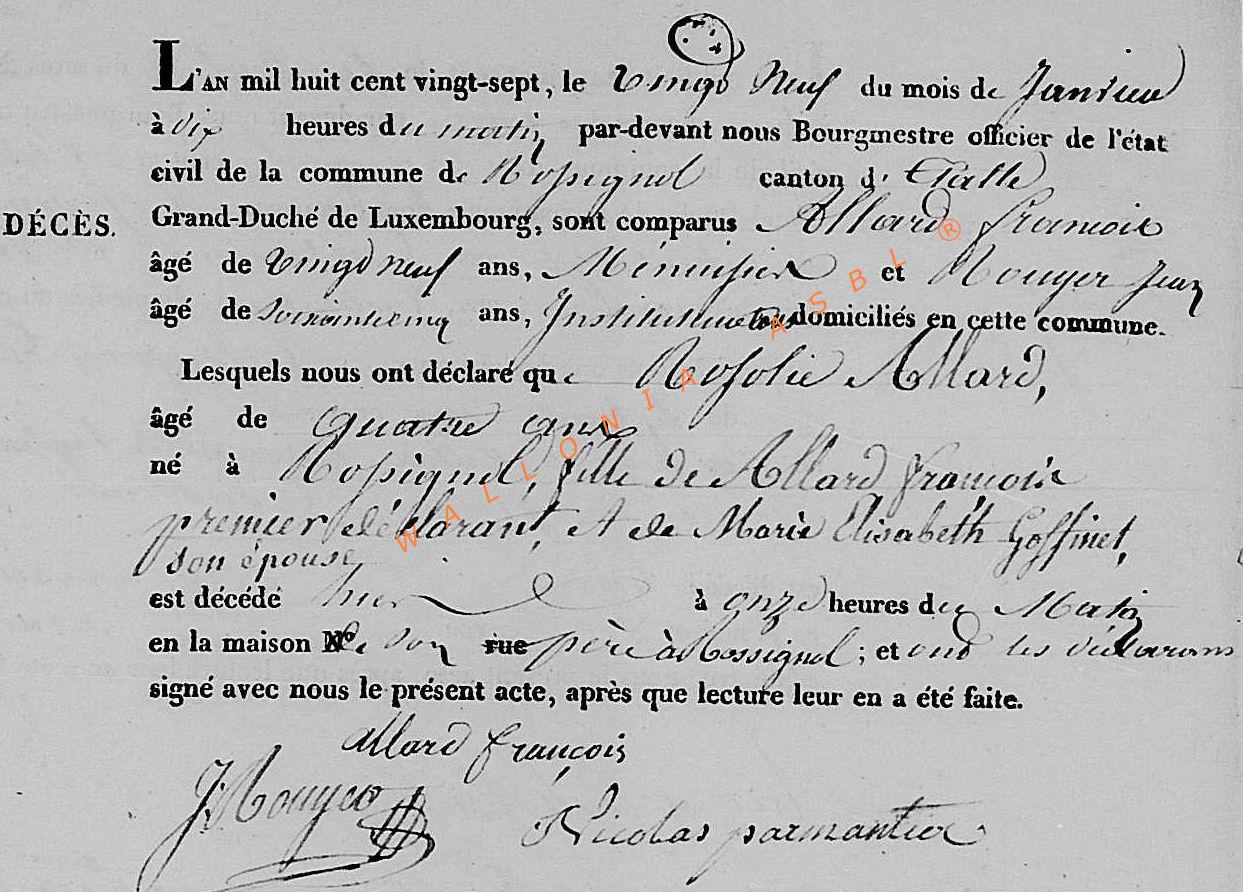 L'AN mil huit cent vingt-sept, le vingt neuf du mois de Janvier
à dix heures du matin par-devant nous Bourgmestre officier de l'état
civil de la commune de Rossignol canton d' Etalle
DÉCÈS. Grand-Duché de Luxembourg, sont comparus Allard françois
âgé de vingt neuf ans, Menuisier et Rouyer Jean
âgé de soixante cinq ans, Instituteur tous domiciliés en cette commune.
Lesquels nous ont déclaré que Rosolie Allard,
âgé de quatre ans
né à Rossignol, fille de Allard françois
premier déclarant, et de Marie Elisabeth Goffinet,
son épouse
est décédé hier à onze heures du Matin
en la maison de son rue père à Rossignol ; et ont les déclarans
signé avec nous le présent acte, après que lecture leur en a été faite.
allard françois
J. Rouyer
Nicolas parmantier
WALLONIA ASBL ®